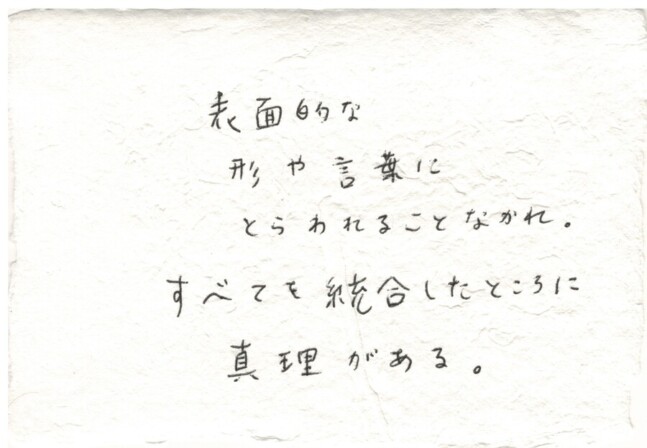 表面的な
形や言葉に
とらわれることなかれ。
すべてを統合したところに
真理がある。